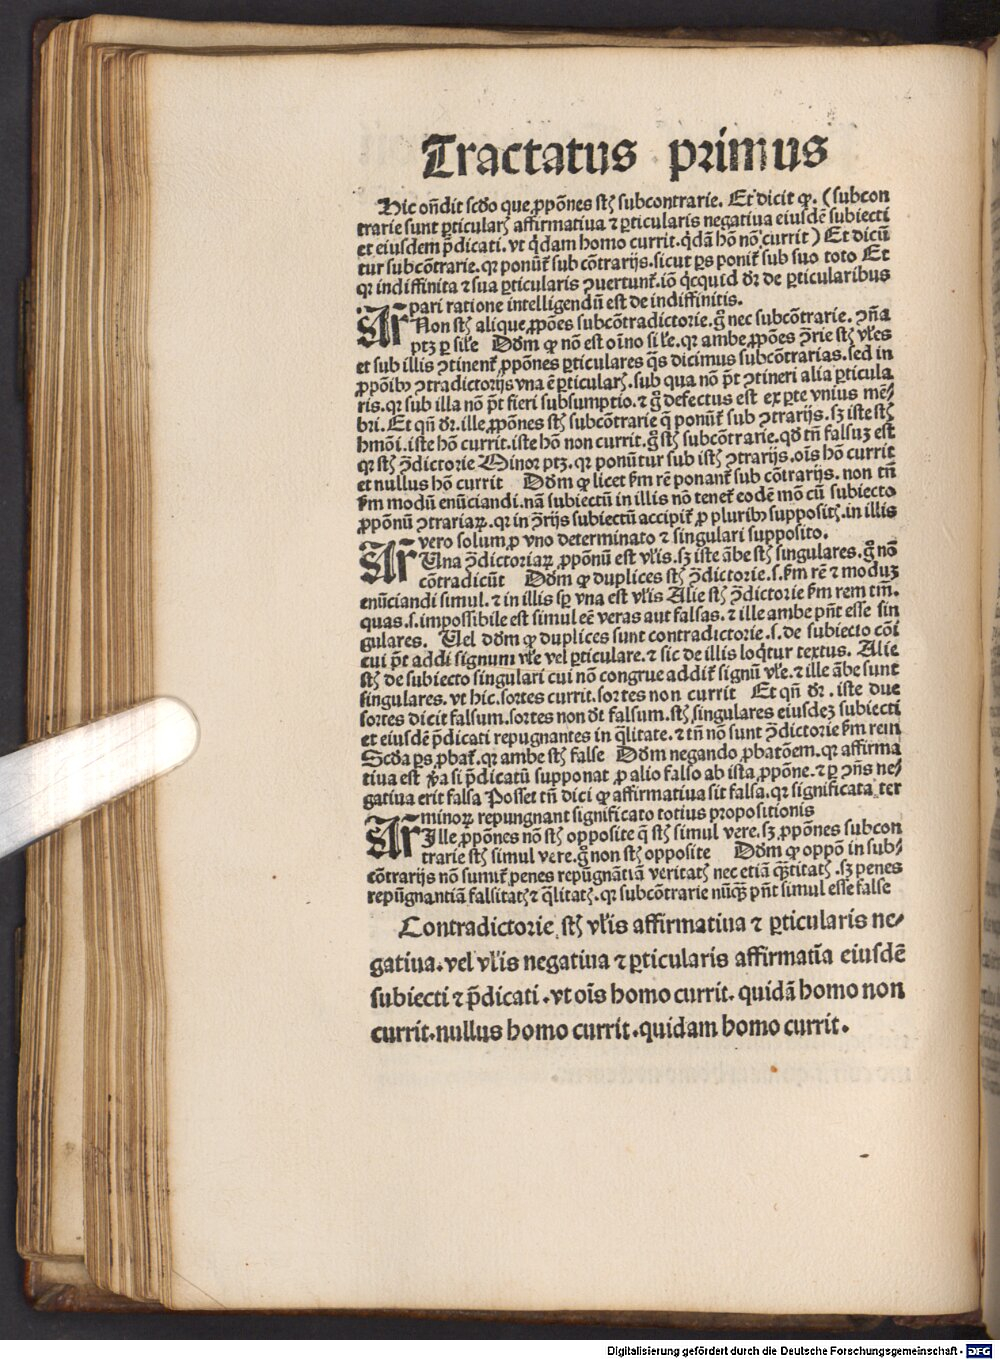 Tractatus primus
Hic oñdit scďo que ꝓpōnes stꝫ subcontrarie. Et dicit ꝙ. (subcon
trarie sunt ꝑticularꝫ affirmatiua ⁊ ꝑticularis negatiua eiusdē subiecti
et eiusdem p̄dicati. vt q̇dam homo currit.q̇dā hō nō currit) Et dicū
tur subcōtrarie. qꝛ ponūt᷑ sub cōtrarijs.sicut ꝑs ponit᷑ sub suo toto Et
qꝛ indiffinita ⁊ sua ꝑticularis ꝯuertunt᷑.iō q̇cquid dr̄ de ꝑticularibus
pari ratione intelligendū est de indiffinitis.
Ar Non stꝫ alique ꝓpōes subcōtradictorie.g̊ nec subcōtrarie. ꝯña
ptꝫ ꝑ sil̄e Dōm ꝙ nō est oīno sil̄e.qꝛ ambe ꝓpōes ꝯ̄rie stꝫ vl̄es
et sub illis ꝯtinent᷑ ꝓpōnes ꝑticulares q̄s dicimus subcōtrarias.sed in
ꝓpōibꝫ ꝯtradictorijs vna ē ꝑticularꝫ.sub qua nō pōt ꝯtineri alia ꝑticula
ris.qꝛ sub illa nō pōt fieri subsumptio.⁊ g̊ defectus est ex ꝑte vnius mē⸗
bri. Et qñ dr̄. ille ꝓpōnes stꝫ subcōtrarie q̄ ponūt᷑ sub ꝯtrarijs.sꝫ iste stꝫ
hmōi.iste hō currit.iste hō non currit.g̊ stꝫ subcōtrarie.qď tñ falsuꝫ est
qꝛ stꝫ ꝯ̄dictorie Minor ptꝫ.qꝛ ponūtur sub istꝫ ꝯtrarijs.oīs hō currit
et nullus hō currit Dōm ꝙ licet ẜm rē ponant᷑ sub cōtrarijs. non tñ
ẜm modū enūciandi.nā subiectū in illis nō tenet᷑ eodē mō cū subiecto
ꝓpōnū ꝯtrariaꝝ.qꝛ in ꝯ̄rijs subiectū accipit᷑ ꝓ pluribꝫ suppositꝫ.in illis
vero solum ꝓ vno determinato ⁊ singulari supposito.
Ar Una ꝯ̄dictoriaꝝ ꝓpōnū est vl̄is.sꝫ iste ābe stꝫ singulares.g̊ nō
cōtradicūt Dōm ꝙ duplices stꝫ ꝯ̄dictorie.s.ẜm rē ⁊ moduꝫ
enūciandi simul.⁊ in illis sꝑ vna est vl̄is Alie stꝫ ꝯ̄dictorie ẜm rem tm̄.
quas.s.impossibile est simul eē veras aut falsas.⁊ ille ambe pñt esse sin
gulares. Uel dōm ꝙ duplices sunt contradictorie.s.de subiecto cōi
cui pōt addi signum vl̄e vel ꝑticulare.⁊ sic de illis loq̇tur textus. Alie
stꝫ de subiecto singulari cui nō congrue addit᷑ signū vl̄e.⁊ ille ābe sunt
singulares. vt hic.sortes currit.sortes non currit Et qñ dr̄. iste due
sortes dicit falsum.sortes non dt̄ falsum.stꝫ singulares eiusdeꝫ subiecti
et eiusdē p̄dicati repugnantes in q̄litate.⁊ tñ nō sunt ꝯ̄dictorie ẜm rem
Scďa ꝑs ꝓbat᷑.qꝛ ambe stꝫ false Dōm negando ꝓbatōem.qꝛ affirma
tiua est ꝟa si p̄dicatū supponat ꝓ alio falso ab ista ꝓpōne.⁊ ꝑ ꝯñs ne⸗
gatiua erit falsa Posset tñ dici ꝙ affirmatiua sit falsa.qꝛ significata ter
minoꝝ repungnant significato totius propositionis
Ar Ille ꝓpōnes nō stꝫ opposite q̄ stꝫ simul vere.sꝫ ꝓpōnes subcon
trarie stꝫ simul vere.g̊ non stꝫ opposite Dōm ꝙ oppō in sub⸗
cōtrarijs nō sumit᷑ penes repūgnātiā veritatꝫ nec etiā q̄ꝫtitatꝫ.sꝫ penes
repūgnantiā falsitatꝫ ⁊ q̄litatꝫ.qꝛ subcōtrarie nūqꝫ̄ pñt simul esse false
Contradictorie stꝫ vl̄is affirmatiua ⁊ ꝑticularis ne⸗
gatiua.vel vl̄is negatiua ⁊ ꝑticularis affirmatīa eiusdē
subiecti ⁊ p̄dicati.vt oīs homo currit. quidā homo non
currit.nullus homo currit.quidam homo currit.
Digitalisierung gefördert durch die Deutsche Forschungsgemeinschaft - DFG